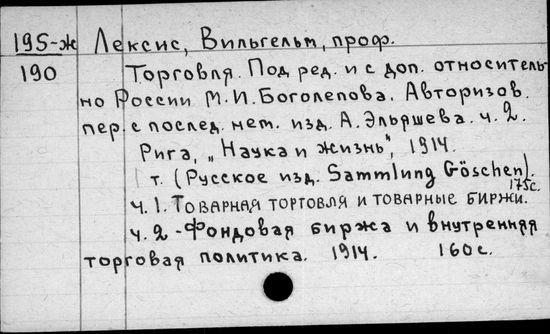 195-ж Лексис, Вильгельм, проф.
190 Торговля. Под ред. и с доп. относитель-
но России М. И. Боголепова. Авторизов.
пер. с послед. нем. изд. А. Эльяшева. ч. 2.
Рига, „Наука и жизнь", 1914.
т. (Русское изд. Sammlung Göschen).
175с.
ч. 1. Товарная торговля и товарные биржи.
ч. 2 - Фондовая биржа и внутренняя
торговая политика. 1914. 160 с.